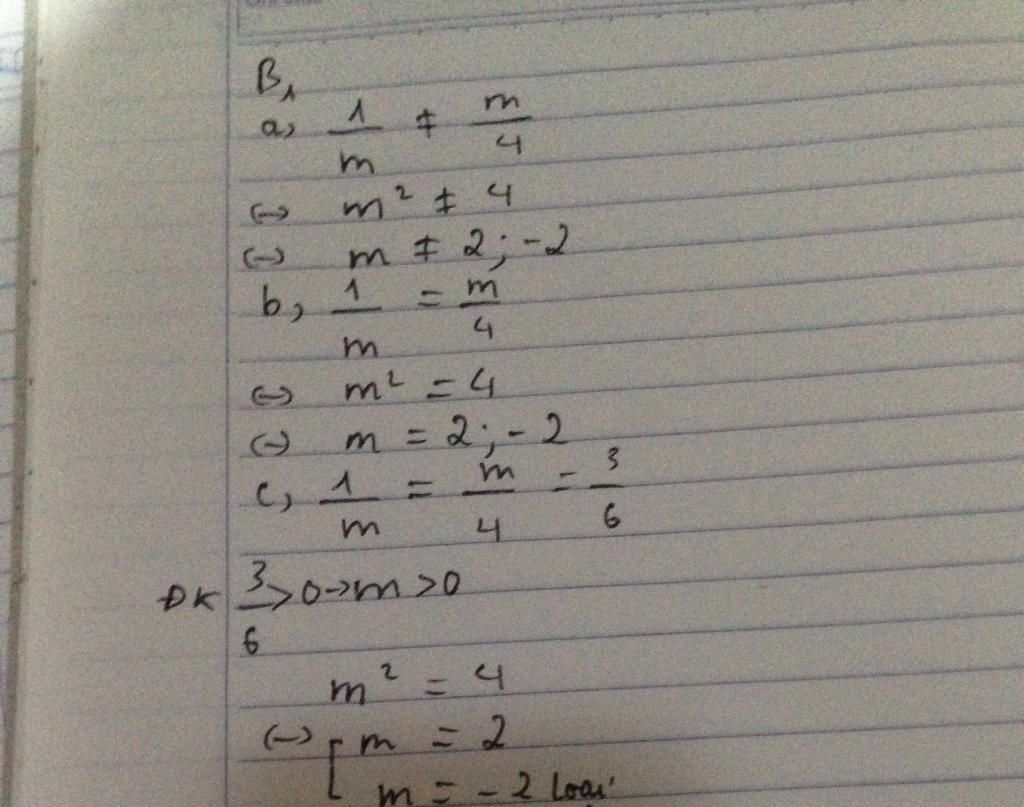 B1
a, 1/m ≠ m/4
<-> m² ≠ 4
<-> m ≠ 2 ; -2
b, 1/m = m/4
<-> m² = 4
<-> m = 2 ; -2
c, 1/m = m/4 = 3/6
ĐK 3/6 > 0 -> m > 0
m² = 4
<-> [ m = 2
m = -2 loại